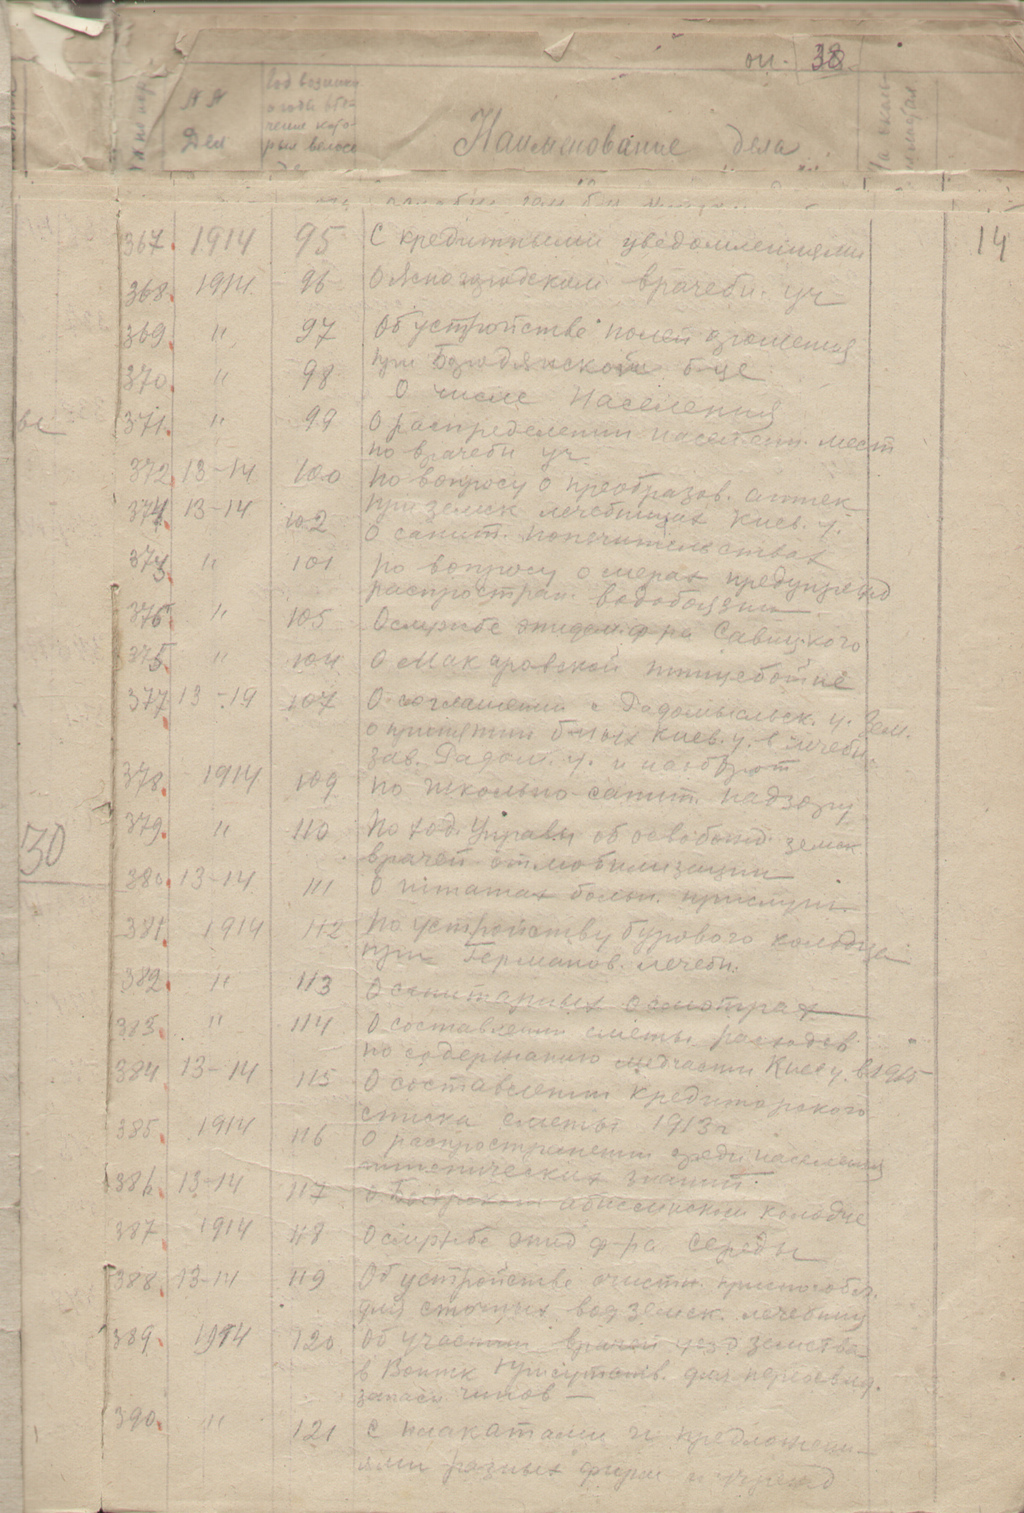 оп. 38.
№№ Дел
Наименование дела
14
367. 1914 95 С кредитными уведомлениями
368. 1914 96 О Ясногородском врачебн. уч
369. " 97 Об устройстве полей орошения
при Бородянской б-це
370. " 98 О числе населения
371. " 99 О распределении населени. мест
по врачебн уч.
372 13-14 100 По вопросу о преобразов. аптек
при земск лечебницах Киев. у.
374. 13-14 102 О санит. попечительствах
373. " 101 По вопросу о мерах предупрежд
распростран. водобоязни
376. " 105 О службе эпидем. ф-ра Савицкого
375. " 104 О Макаровской птицебойне
377. 13-19 107 О соглашении с Радомысльск. у. зем.
о принятии б-ных Киев. у. в лечебн.
зав. Радом. у. и наоборот
378. 1914 109 По школьно-санит. надзору
379. " 110 По ход. Управы об освобожд. земск
врачей от мобилизации
30
380. 13-14 111 О штатах больн. прислуги
381. 1914 112 По устройству бурового колодца
при Германов. лечебн.
382. " 113 О санитарных осмотрах
383. " 114 О составлении сметы расходов
по содержанию медчасти Киев у. в 1915
384 13-14 115 О составлении кредиторского
списка сметы 1913 г
385. 1914 116 О распространении среди населения
гигиенических знаний.
386. 13-14 117 О Боярском абиссинском колодце
387. 1914 118 О службе эпид ф-ра Середы
388. 13-14 119 Об устройстве очистн. приспособл.
для сточных вод земск. лечебниц
389. 1914 120 Об участии врачей уезд земства
в Воинск Присутств. для переосвид.
запасн чинов —
390. " 121 С плакатами и предложени-
ями разных фирм и учрежд